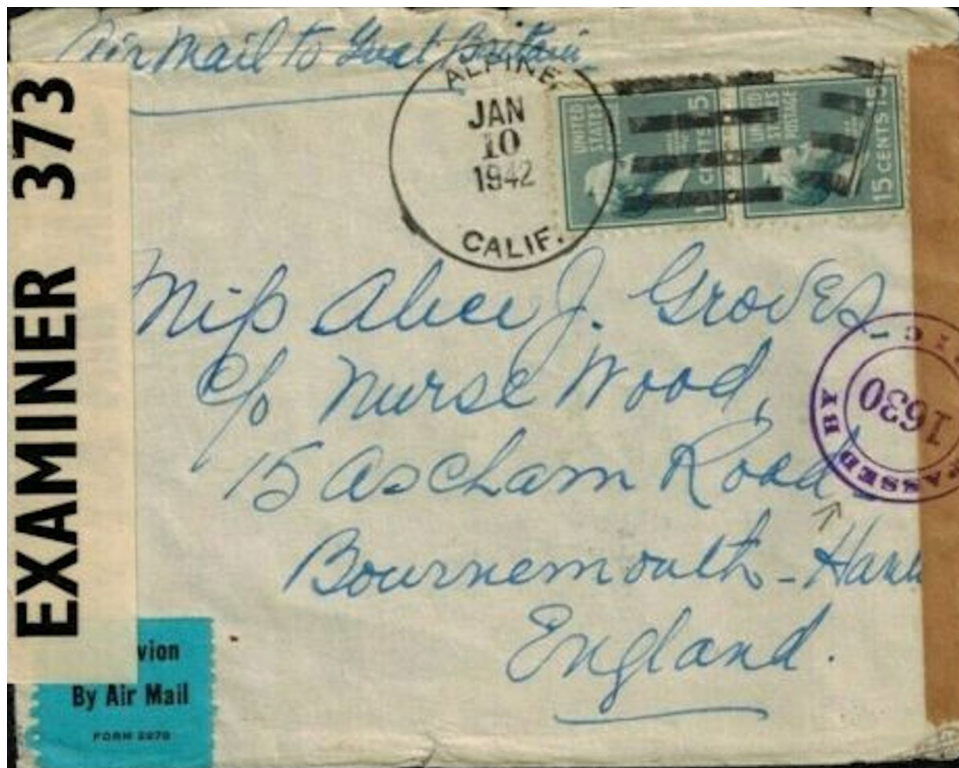 Air Mail to Great Britain
ALPINE.
JAN
10
1942
CALIF.
UNITED STATES
15 CENTS 15
UNITED STATES POSTAGE
15 CENTS 15
EXAMINER 373
Miss Alice J. Groves,
c/o Nurse Wood,
15 Ascham Road
Bournemouth - Han
England.
PASSED BY
1630
vion
By Air Mail
FORM 2978